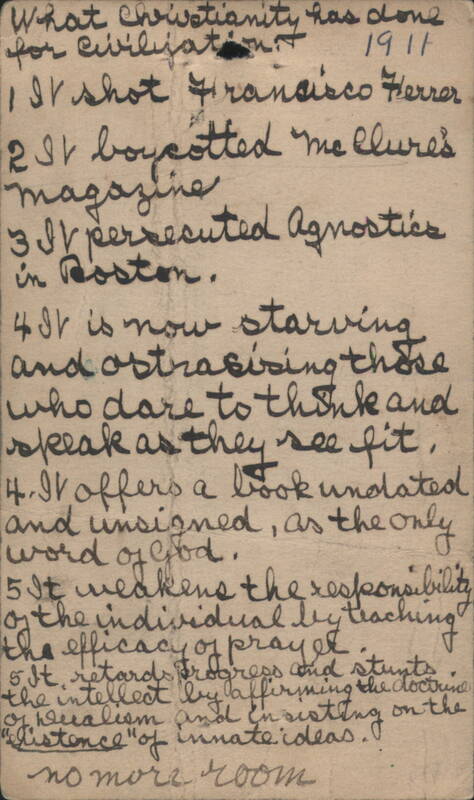 What Christianity has done
for Civilization. 1911
1 It shot Francisco Ferrer
2 It boycotted McClure's
Magazine
3 It persecuted Agnostics
in Boston.
4 It is now starving
and ostrasising those
who dare to think and
speak as they see fit.
4. It offers a book undated
and unsigned, as the only
word of God.
5 It weakens the responsibility
of the individual by teaching
the efficacy of prayer.
6 It retards progress and stunts
the intellect by affirming the doctrine
of and insisting on the
"existence" of innate ideas.
no more room